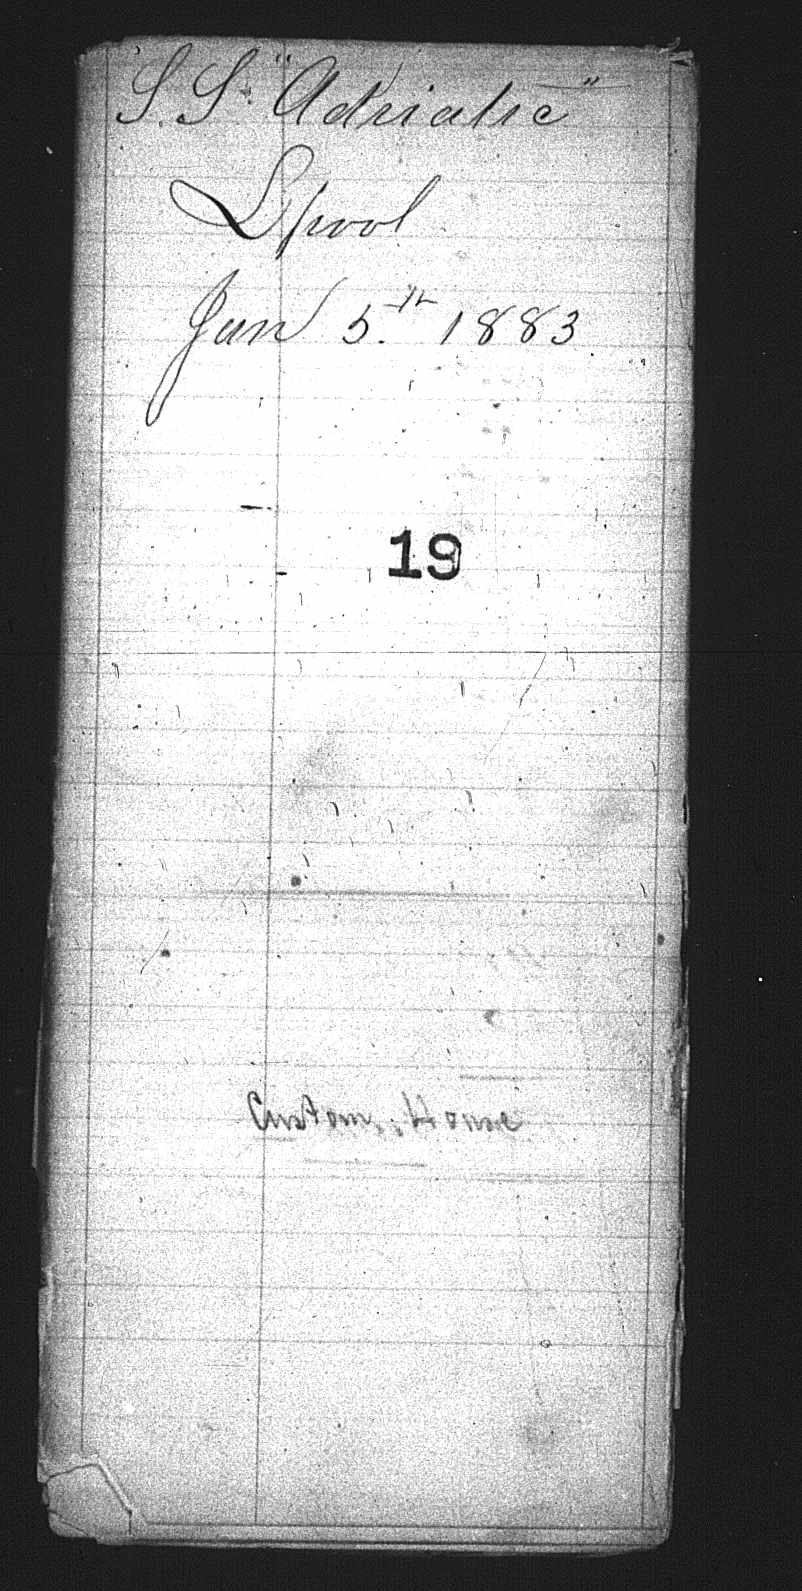 S.S. "Adriatic"
Lpool
Jan 5.th 1883
19
Custom House